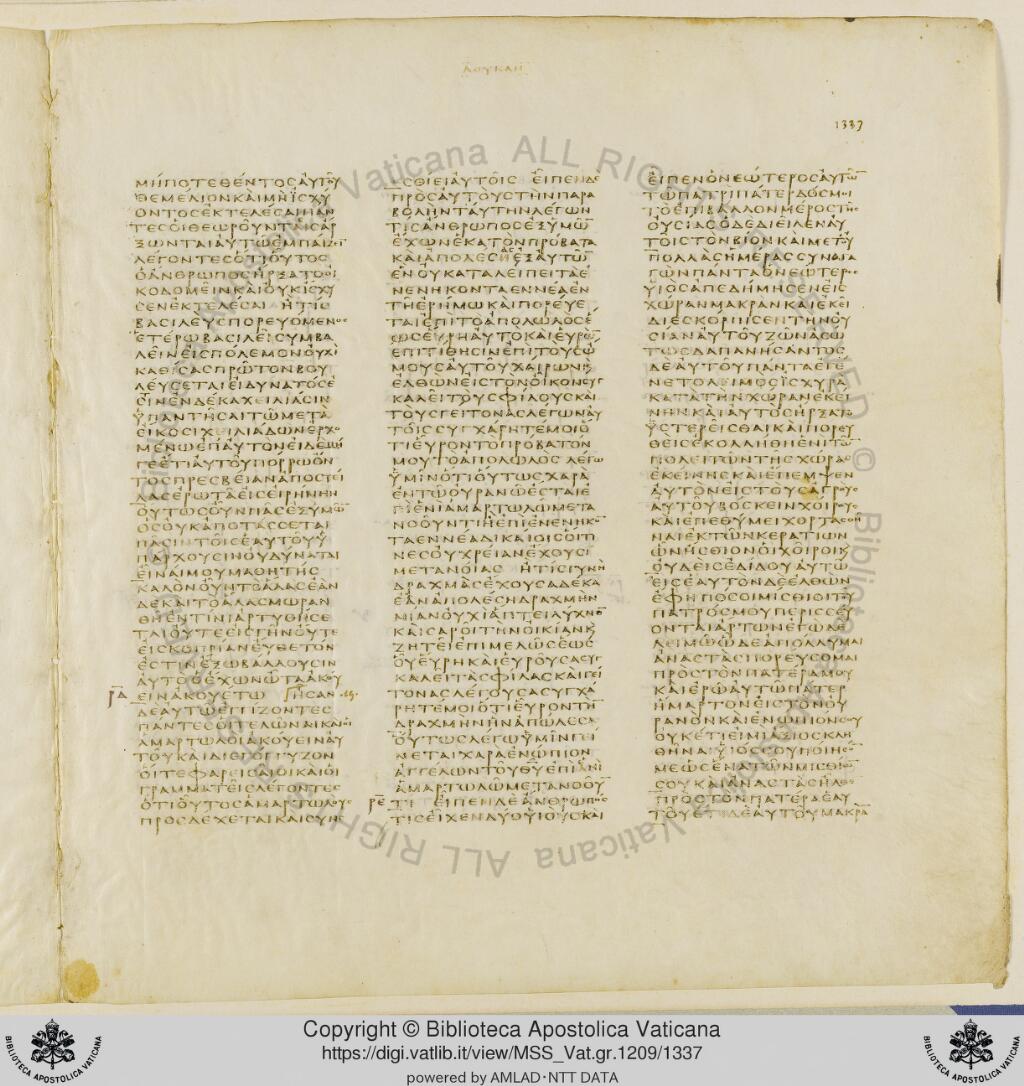 ΛΟΥΚΑΝ
1337
ΜΗΠΟΤΕΘΕΝΤΟϹΑΥΤΟΥ
ΘΕΜΕΛΙΟΝΚΑΙΜΗΙϹΧΥ
ΟΝΤΟϹΕΚΤΕΛΕϹΑΙΠΑΝ
ΤΕϹΟΙΘΕΩΡΟΥΝΤΕϹΑΡ
ΞΩΝΤΑΙΑΥΤΩΕΜΠΑΙΖΕΙ
ΛΕΓΟΝΤΕϹΟΤΙΟΥΤΟϹ
ΟΑΝΘΡΩΠΟϹΗΡΞΑΤΟΟΙ
ΚΟΔΟΜΕΙΝΚΑΙΟΥΚΙϹΧΥ
ϹΕΝΕΚΤΕΛΕϹΑΙ ΗΤΙϹ
ΒΑϹΙΛΕΥϹΠΟΡΕΥΟΜΕΝΟϹ
ΕΤΕΡΩΒΑϹΙΛΕΙϹΥΜΒΑ
ΛΕΙΝΕΙϹΠΟΛΕΜΟΝΟΥΧΙ
ΚΑΘΙϹΑϹΠΡΩΤΟΝΒΟΥ
ΛΕΥϹΕΤΑΙΕΙΔΥΝΑΤΟϹΕ
ϹΤΙΝΕΝΔΕΚΑΧΕΙΛΙΑϹΙΝ
ΥΠΑΝΤΗϹΑΙΤΩΜΕΤΑ
ΕΙΚΟϹΙΧΕΙΛΙΑΔΩΝΕΡΧΟ
ΜΕΝΩΕΠΑΥΤΟΝΕΙΔΕΜΗ
ΓΕΕΤΙΑΥΤΟΥΠΟΡΡΩΟΝ
ΤΟϹΠΡΕϹΒΕΙΑΝΑΠΟϹΤΕΙ
ΛΑϹΕΡΩΤΑΕΙϹΕΙΡΗΝΗΝ
ΟΥΤΩϹΟΥΝΠΑϹΕΞΥΜΩ̅
ΟϹΟΥΚΑΠΟΤΑϹϹΕΤΑΙ
ΠΑϹΙΝΤΟΙϹΕΑΥΤΟΥΥ
ΠΑΡΧΟΥϹΙΝΟΥΔΥΝΑΤΑΙ
ΕΙΝΑΙΜΟΥΜΑΘΗΤΗϹ
ΚΑΛΟΝΟΥΝΤΟΑΛΑϹΕΑΝ
ΔΕΚΑΙΤΟΑΛΑϹΜΩΡΑΝ
ΘΗΕΝΤΙΝΙΑΡΤΥΘΗϹΕ
ΤΑΙΟΥΤΕΕΙϹΓΗΝΟΥΤΕ
ΕΙϹΚΟΠΡΙΑΝΕΥΘΕΤΟΝ
ΕϹΤΙΝΕΞΩΒΑΛΛΟΥϹΙΝ
ΑΥΤΟΟΕΧΩΝΩΤΑΑΚΟΥ
ΕΙΝΑΚΟΥΕΤΩ ΗϹΑΝ
ΔΕΑΥΤΩΕΓΓΙΖΟΝΤΕϹ
ΠΑΝΤΕϹΟΙΤΕΛΩΝΑΙΚΑΙΟΙ
ΑΜΑΡΤΩΛΟΙΑΚΟΥΕΙΝΑΥ
ΤΟΥΚΑΙΔΙΕΓΟΓΓΥΖΟΝ
ΟΙΤΕΦΑΡΕΙϹΑΙΟΙΚΑΙΟΙ
ΓΡΑΜΜΑΤΕΙϹΛΕΓΟΝΤΕϹ
ΟΤΙΟΥΤΟϹΑΜΑΡΤΩΛΟΥϹ
ΠΡΟϹΔΕΧΕΤΑΙΚΑΙϹΥΝΕ
ϹΘΙΕΙΑΥΤΟΙϹ ΕΙΠΕΝΔΕ
ΠΡΟϹΑΥΤΟΥϹΤΗΝΠΑΡΑ
ΒΟΛΗΝΤΑΥΤΗΝΛΕΓΩΝ
ΤΙϹΑΝΘΡΩΠΟϹΕΞΥΜΩ̅
ΕΧΩΝΕΚΑΤΟΝΠΡΟΒΑΤΑ
ΚΑΙΑΠΟΛΕϹΗΕΞΑΥΤΩ̅
ΕΝΟΥΚΑΤΑΛΕΙΠΕΙΤΑΕ
ΝΕΝΗΚΟΝΤΑΕΝΝΕΑΕΝ
ΤΗΕΡΗΜΩΚΑΙΠΟΡΕΥΕ
ΤΑΙΕΠΙΤΟΑΠΟΛΩΛΟϹΕ
ΩϹΕΥΡΗΑΥΤΟΚΑΙΕΥΡΩ̅
ΕΠΙΤΙΘΗϹΙΝΕΠΙΤΟΥϹΩ
ΜΟΥϹΑΥΤΟΥΧΑΙΡΩΝΚΑΙ
ΕΛΘΩΝΕΙϹΤΟΝΟΙΚΟΝϹΥΓ
ΚΑΛΕΙΤΟΥϹΦΙΛΟΥϹΚΑΙ
ΤΟΥϹΓΕΙΤΟΝΑϹΛΕΓΩΝΑΥ
ΤΟΙϹϹΥΓΧΑΡΗΤΕΜΟΙΟ
ΤΙΕΥΡΟΝΤΟΠΡΟΒΑΤΟΝ
ΜΟΥΤΟΑΠΟΛΩΛΟϹΛΕΓΩ
ΥΜΙΝΟΤΙΟΥΤΩϹΧΑΡΑ
ΕΝΤΩΟΥΡΑΝΩΕϹΤΑΙΕ
ΠΙΕΝΙΑΜΑΡΤΩΛΩΜΕΤΑ
ΝΟΟΥΝΤΙΗΕΠΙΕΝΕΝΗΚΟ̅
ΤΑΕΝΝΕΑΔΙΚΑΙΟΙϹΟΙΤΙ
ΝΕϹΟΥΧΡΕΙΑΝΕΧΟΥϹΙ
ΜΕΤΑΝΟΙΑϹ ΗΤΙϹΓΥΝΗ
ΔΡΑΧΜΑϹΕΧΟΥϹΑΔΕΚΑ
ΕΑΝΑΠΟΛΕϹΗΔΡΑΧΜΗΝ
ΜΙΑΝΟΥΧΙΑΠΤΕΙΛΥΧΝΟ̅
ΚΑΙϹΑΡΟΙΤΗΝΟΙΚΙΑΝΚ
ΖΗΤΕΙΕΠΙΜΕΛΩϹΕΩϹ
ΟΥΕΥΡΗΚΑΙΕΥΡΟΥϹΑϹΥΓ
ΚΑΛΕΙΤΑϹΦΙΛΑϹΚΑΙΓΕΙ
ΤΟΝΑϹΛΕΓΟΥϹΑϹΥΓΧΑ
ΡΗΤΕΜΟΙΟΤΙΕΥΡΟΝΤΗ̅
ΔΡΑΧΜΗΝΗΝΑΠΩΛΕϹΑ
ΟΥΤΩϹΛΕΓΩΥΜΙΝΓΕΙ
ΝΕΤΑΙΧΑΡΑΕΝΩΠΙΟΝ
ΑΓΓΕΛΩΝΤΟΥΘΥΕΠΙΕΝΙ
ΑΜΑΡΤΩΛΩΜΕΤΑΝΟΟΥ
ΤΙ ΕΙΠΕΝΔΕΑΝΘΡΩΠΟϹ
ΤΙϹΕΙΧΕΝΔΥΟΥΙΟΥϹΚΑΙ
ΕΙΠΕΝΟΝΕΩΤΕΡΟϹΑΥΤΩ̅
ΤΩΠΑΤΡΙΠΑΤΕΡΔΟϹΜΟΙ
ΤΟΕΠΙΒΑΛΛΟΝΜΕΡΟϹΤΗϹ
ΟΥϹΙΑϹΟΔΕΔΙΕΙΛΕΝΑΥ
ΤΟΙϹΤΟΝΒΙΟΝΚΑΙΜΕΤΟΥ
ΠΟΛΛΑϹΗΜΕΡΑϹϹΥΝΑΓΑ
ΓΩΝΠΑΝΤΑΟΝΕΩΤΕΡΟϹ
ΥΙΟϹΑΠΕΔΗΜΗϹΕΝΕΙϹ
ΧΩΡΑΝΜΑΚΡΑΝΚΑΙΕΚΕΙ
ΔΙΕϹΚΟΡΠΙϹΕΝΤΗΝΟΥ
ϹΙΑΝΑΥΤΟΥΖΩΝΑϹΩ
ΤΩϹΔΑΠΑΝΗϹΑΝΤΟϹ
ΔΕΑΥΤΟΥΠΑΝΤΑΕΓΕ
ΝΕΤΟΛΕΙΜΟϹΙϹΧΥΡΑ
ΚΑΤΑΤΗΝΧΩΡΑΝΕΚΕΙ
ΝΗΝΚΑΙΑΥΤΟϹΗΡΞΑΤΟ
ΥϹΤΕΡΕΙϹΘΑΙΚΑΙΠΟΡΕΥ
ΘΕΙϹΕΚΟΛΛΗΘΗΕΝΙΤΩ̅
ΠΟΛΕΙΤΩΝΤΗϹΧΩΡΑϹ
ΕΚΕΙΝΗϹΚΑΙΕΠΕΜΨΕΝ
ΑΥΤΟΝΕΙϹΤΟΥϹΑΓΡΟΥϹ
ΑΥΤΟΥΒΟϹΚΕΙΝΧΟΙΡΟΥϹ
ΚΑΙΕΠΕΘΥΜΕΙΧΟΡΤΑϹΘΗ
ΝΑΙΕΚΤΩΝΚΕΡΑΤΙΩΝ
ΩΝΗϹΘΙΟΝΟΙΧΟΙΡΟΙΚ
ΟΥΔΕΙϹΕΔΙΔΟΥΑΥΤΩ
ΕΙϹΕΑΥΤΟΝΔΕΕΛΘΩΝ
ΕΦΗΠΟϹΟΙΜΙϹΘΙΟΙΤΟΥ
ΠΑΤΡΟϹΜΟΥΠΕΡΙϹϹΕΥ
ΟΝΤΑΙΑΡΤΩΝΕΓΩΔΕ
ΛΕΙΜΩΩΔΕΑΠΟΛΛΥΜΑΙ
ΑΝΑϹΤΑϹΠΟΡΕΥϹΟΜΑΙ
ΠΡΟϹΤΟΝΠΑΤΕΡΑΜΟΥ
ΚΑΙΕΡΩΑΥΤΩΠΑΤΕΡ
ΗΜΑΡΤΟΝΕΙϹΤΟΝΟΥ
ΡΑΝΟΝΚΑΙΕΝΩΠΙΟΝϹΟΥ
ΟΥΚΕΤΙΕΙΜΙΑΞΙΟϹΚΛΗ
ΘΗΝΑΙΥΙΟϹϹΟΥΠΟΙΗϹΟ̅
ΜΕΩϹΕΝΑΤΩΝΜΙϹΘΙΩ̅
ϹΟΥΚΑΙΑΝΑϹΤΑϹΗΛΘΕ̅
ΠΡΟϹΤΟΝΠΑΤΕΡΑΕΑΥ
ΤΟΥΕΤΙΔΕΑΥΤΟΥΜΑΚΡΑ̅
Copyright © Biblioteca Apostolica Vaticana
https://digi.vatlib.it/view/MSS_Vat.gr.1209/1337
powered by AMLAD·NTT DATA